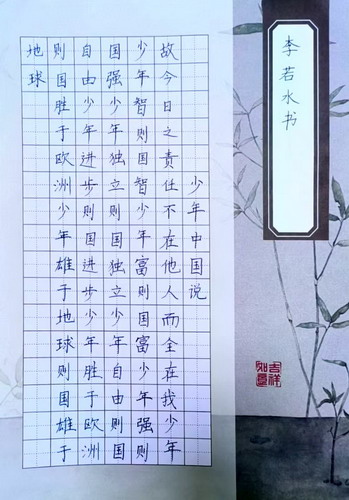 少年中国说
故今日之责任不在他人而全在我少年
少年智则国智少年富则国富少年强则
国强少年独立则国独立少年自由则国
自由少年进步则国进步少年胜于欧洲
则国胜于欧洲少年雄于地球则国雄于
地球
李若水书
吉祥
如意